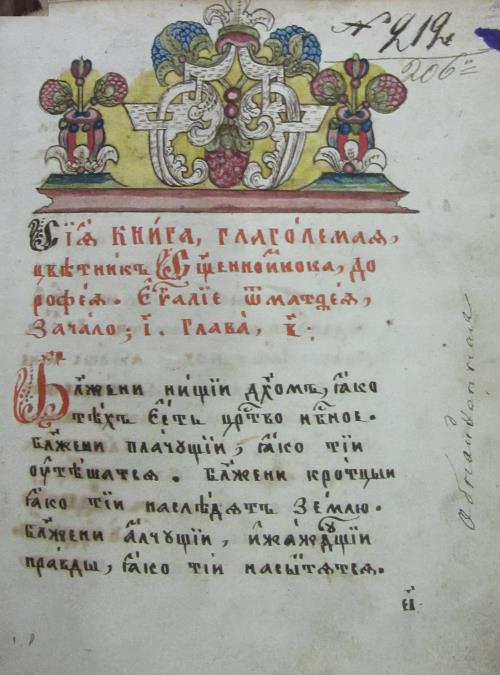 № 219
206
Сїѧ҄ кни́га, глаго́лемая,
цвѣтникъ сщ҃енноино́ка, до
роѳе́я. Є҆ѵ҃алїе ѿ матѳе́ѧ,
Зача́ло, і҃. Глава̀,
Бл҃же́ни ни́щїи дх҃омъ, ꙗ҆́ко
тѣ́хъ є҆́сть црⷭ҇тво нбⷭ҇ное.
Бл҃же́ни пла́чꙋщїи, ꙗ҆́ко тїи
ᲂу҆тѣ́шатсѧ. Бл҃же́ни кро́тцыи
ꙗ҆́ко тїи наслѣ́дѧтъ зе́млю.
Бл҃же́ни а҆́лчꙋщїи, и҆жа́ждꙋщїи
пра́вды, ꙗ҆́ко тїи насы́тѧтсѧ.